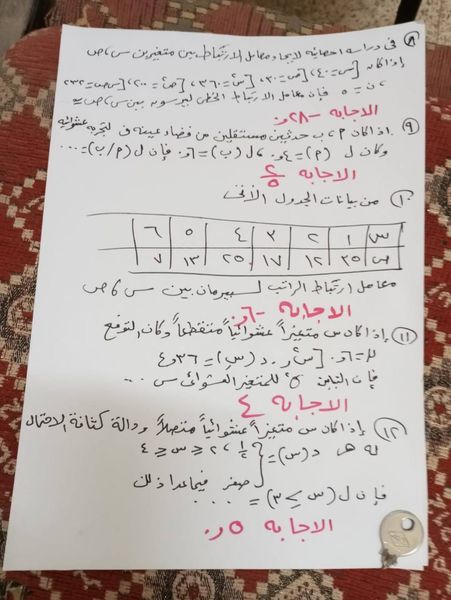 ٨) فى دراسة احصائية لايجاد معامل الارتباط بين متغيرين س ، ص
إذا كان [س = ٤٠ ، [ص = ٣٠ ، [س٢ = ٣٦٠ ، [ص٢ = ٢٠٠ ، [س ص = ٢٣٢
، ن = ٥ فإن معامل الارتباط الخطى لبيرسون بين س ، ص =
الاجابه - ٢٨و.
٩) إذا كان P ، ب حدثين مستقلين من فضاء عينه ف لتجربه عشوائيه
وكان ل (P) = ٤و. ، ل (ب) = ٦و. فإن ل (P/ب) = ...
الاجابه ٢/٥
١٠) من بيانات الجدول الآتى
س ١ ٢ ٣ ٤ ٥ ٦
ص ٣٥ ١٢ ١٧ ٢٥ ١٣ ٧
معامل ارتباط الراتب لسبيرمان بين س ، ص
الاجابه - ٦و.
١١) إذا كان س متغيراً عشوائياً متقطعاً وكان التوقع
= ٦و. [س٢ر . د (سر) = ٣٦و٤
فإن التباين للمتغير العشوائى س ...
الاجابه ٤
١٢) إذا كان س متغيراً عشوائياً متصلاً ودالة كثافة الاحتمال
له هى د (س) = { ١/٢ ، ٢ ≤ س ≤ ٤
صفر فيما عدا ذلك
فإن ل (س ≥ ٣) =
الاجابه ٥و.